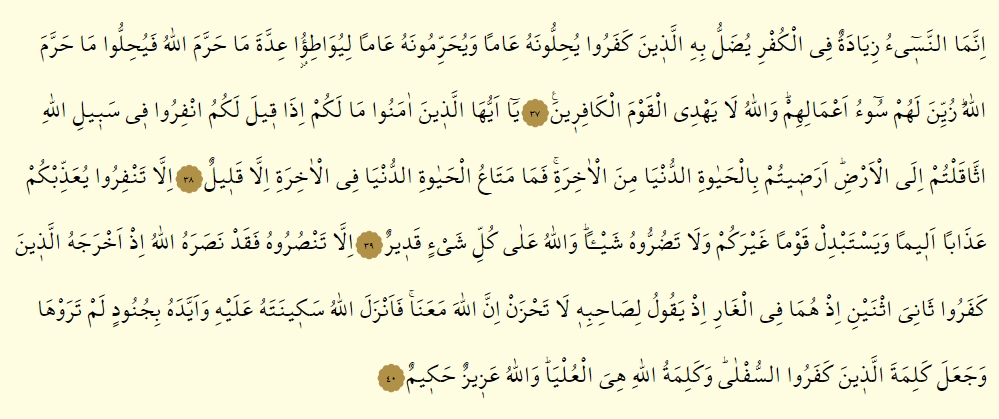 اِنَّمَا النَّسٓيءُ زِيَادَةٌ فِي الْكُفْرِ يُضَلُّ بِهِ الَّذ۪ينَ كَفَرُوا يُحِلُّونَهُ عَامًا وَيُحَرِّمُونَهُ عَامًا لِيُوَاطِؤُ۫ا عِدَّةَ مَا حَرَّمَ اللّٰهُ فَيُحِلُّوا مَا حَرَّمَ
اللّٰهُۜ زُيِّنَ لَهُمْ سُٓوءُ اَعْمَالِهِمْۜ وَاللّٰهُ لَا يَهْدِي الْقَوْمَ الْكَافِر۪ينَ۟ ﴿٣٧﴾ يَٓا اَيُّهَا الَّذ۪ينَ اٰمَنُوا مَا لَكُمْ اِذَا ق۪يلَ لَكُمُ انْفِرُوا ف۪ي سَب۪يلِ اللّٰهِ
اثَّاقَلْتُمْ اِلَى الْاَرْضِۜ اَرَض۪يتُمْ بِالْحَيٰوةِ الدُّنْيَا مِنَ الْاٰخِرَةِۚ فَمَا مَتَاعُ الْحَيٰوةِ الدُّنْيَا فِي الْاٰخِرَةِ اِلَّا قَل۪يلٌ ﴿٣٨﴾ اِلَّا تَنْفِرُوا يُعَذِّبْكُمْ
عَذَابًا اَل۪يمًا وَيَسْتَبْدِلْ قَوْمًا غَيْرَكُمْ وَلَا تَضُرُّوهُ شَيْـًٔاۜ وَاللّٰهُ عَلٰى كُلِّ شَيْءٍ قَد۪يرٌ ﴿٣٩﴾ اِلَّا تَنْصُرُوهُ فَقَدْ نَصَرَهُ اللّٰهُ اِذْ اَخْرَجَهُ الَّذ۪ينَ
كَفَرُوا ثَانِيَ اثْنَيْنِ اِذْ هُمَا فِي الْغَارِ اِذْ يَقُولُ لِصَاحِبِه۪ لَا تَحْزَنْ اِنَّ اللّٰهَ مَعَنَاۚ فَاَنْزَلَ اللّٰهُ سَك۪ينَتَهُ عَلَيْهِ وَاَيَّدَهُ بِجُنُودٍ لَمْ تَرَوْهَا
وَجَعَلَ كَلِمَةَ الَّذ۪ينَ كَفَرُوا السُّفْلٰىۜ وَكَلِمَةُ اللّٰهِ هِيَ الْعُلْيَاۜ وَاللّٰهُ عَز۪يزٌ حَك۪يمٌ ﴿٤٠﴾